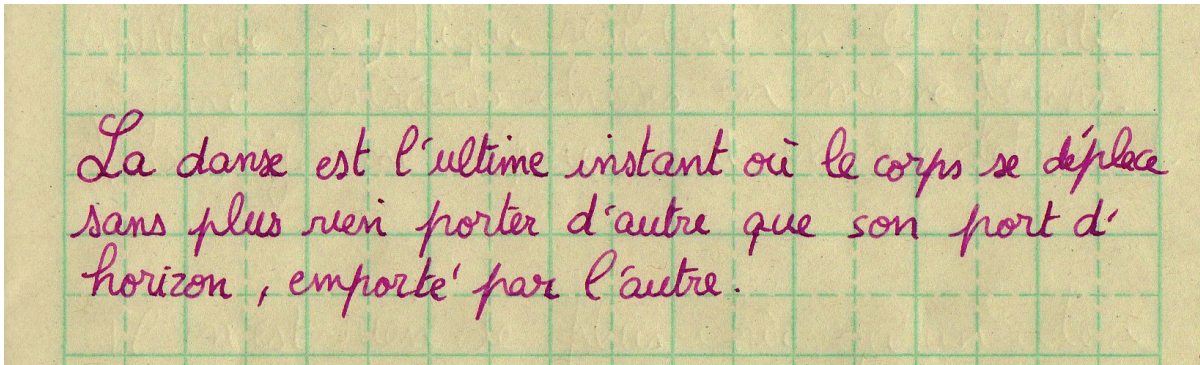 La danse est l'ultime instant où le corps se déplace
sans plus rien porter d'autre que son port d'
horizon, emporté par l'autre.